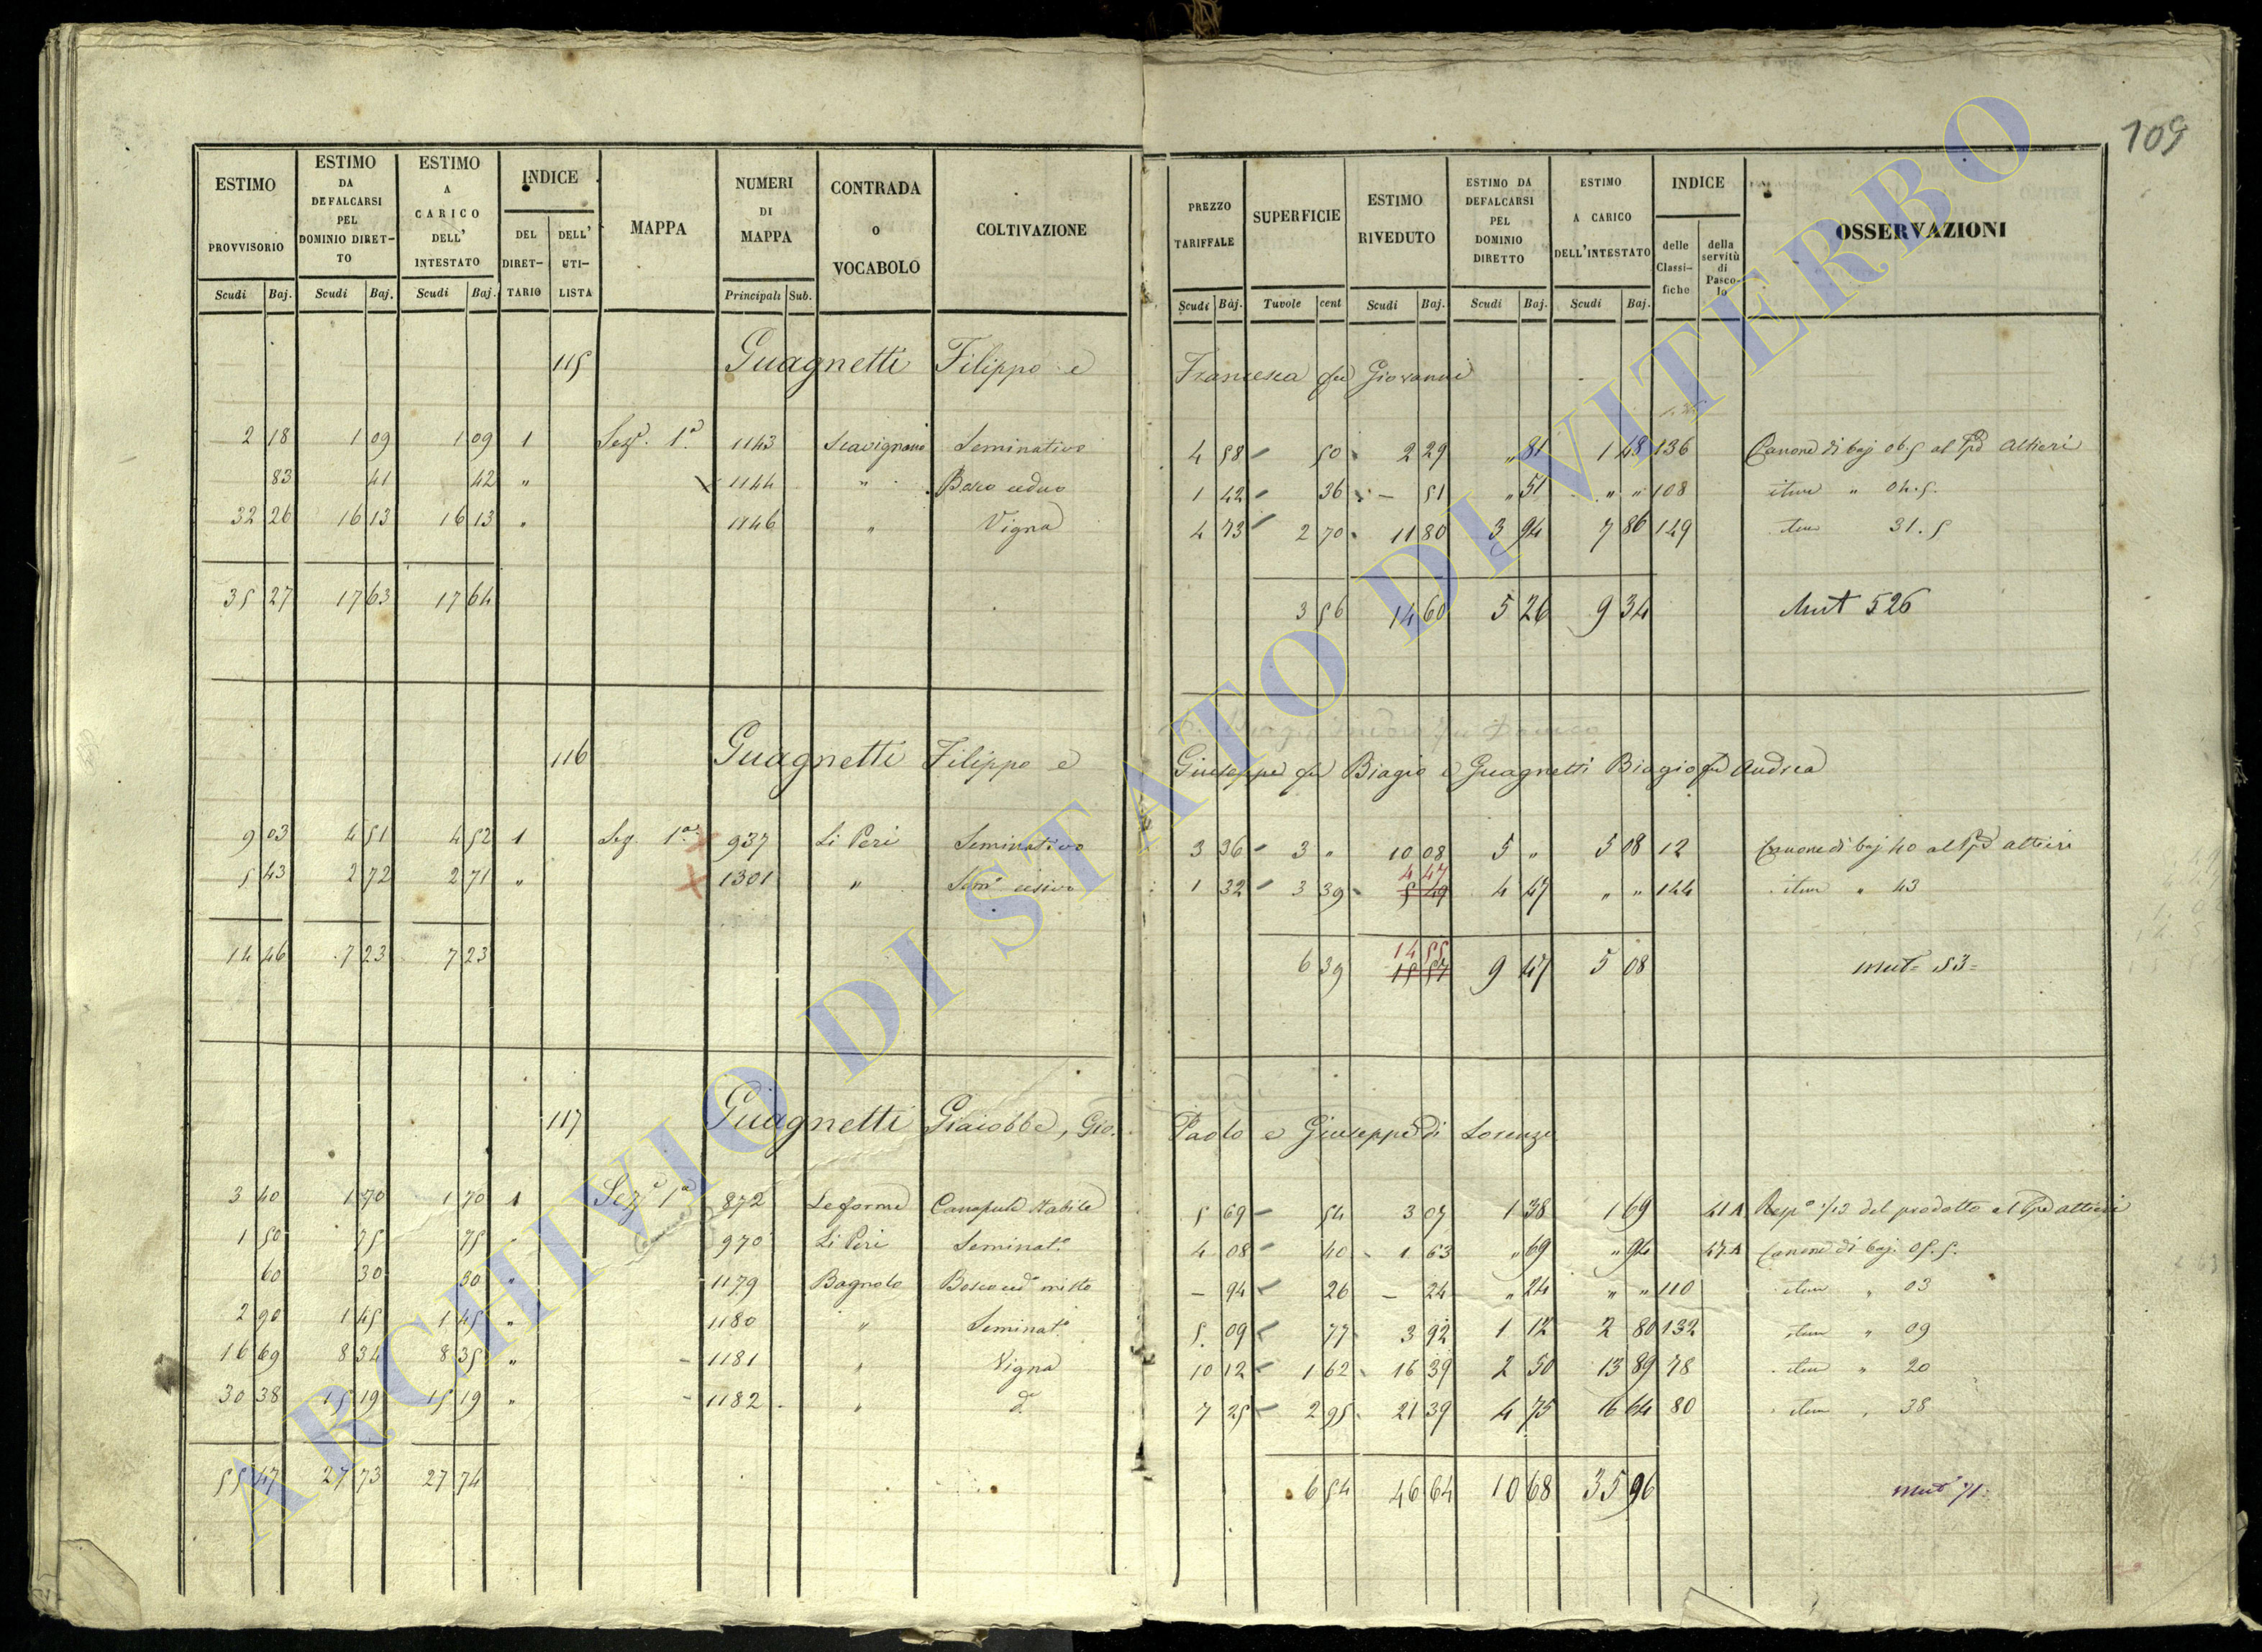 109
ESTIMO PROVVISORIO
ESTIMO DA DEFALCARSI PEL DOMINIO DIRET-TO
ESTIMO A CARICO DELL' INTESTATO
INDICE
DEL DIRET-TARIO
DELL' UTI-LISTA
MAPPA
NUMERI DI MAPPA
CONTRADA o VOCABOLO
COLTIVAZIONE
PREZZO TARIFFALE
SUPERFICIE
ESTIMO RIVEDUTO
ESTIMO DA DEFALCARSI PEL DOMINIO DIRETTO
ESTIMO A CARICO DELL'INTESTATO
INDICE
delle Classi-fiche
della servitù di Pasco-lo
OSSERVAZIONI
Scudi Baj. Scudi Baj. Scudi Baj. Principali Sub. Scudi Baj. Tavole cent Scudi Baj. Scudi Baj. Scudi Baj.
115 Guagnetti Filippo e Francesca fu Giovanni
2 18 1 09 1 09 1 Sez.e 1.a 1143 Scavignano Seminativo 4 58 50 2 29 " 81 1 48 136 Canone di baj 06.5 al Ppe Altieri
83 41 42 " 1144 " Bosco ceduo 1 42 36 - 51 " 51 " " 108 item " 04.5
32 26 16 13 16 13 " 1146 " Vigna 4 73 2 70 11 80 3 94 7 86 149 item 31.5
35 27 17 63 17 64 3 56 14 60 5 26 9 34 Mut 526
116 Guagnetti Filippo e Giuseppe fu Biagio e Guagnetti Biagio fu Andrea
9 03 4 51 4 52 1 Sez 1.a 937 Li Peri Seminativo 3 36 3 " 10 08 5 " 5 08 12 Canone di baj 40 al Ppe altieri
4 47
5 43 2 72 2 71 " 1301 " Sem.o cesivo 1 32 3 39 5 49 4 47 " " 144 item " 43
14 55
14 46 7 23 7 23 6 39 15 57 9 47 5 08 mut= 53=
117 Guagnetti Giaiobbe, Gio. Paolo e Giuseppe di Lorenzo
3 40 1 70 1 70 1 Sez.e 1.a 872 Le forme Canapule stabile 5 69 54 3 07 1 38 1 69 41 A Resp.a 1/12 del prodotto al Ppe altieri
1 50 75 75 " 970 Li Peri Seminat.o 4 08 40 1 63 " 69 " 94 47.A Canone di baj. 05.5.
60 30 30 " 1179 Bagnolo Bosco ced.o misto - 94 26 - 24 " 24 " " 110 item " 03
2 90 1 45 1 45 " 1180 " Seminat.o 5 09 77 3 92 1 12 2 80 132 item " 09
16 69 8 34 8 35 " 1181 " Vigna 10 12 1 62 16 39 2 50 13 89 78 item " 20
30 38 15 19 15 19 " 1182 " d.a 7 25 2 95 21 39 4 75 16 64 80 item " 38
55 47 27 73 27 74 6 54 46 64 10 68 35 96 mut 71
ARCHIVIO DI STATO DI VITERBO